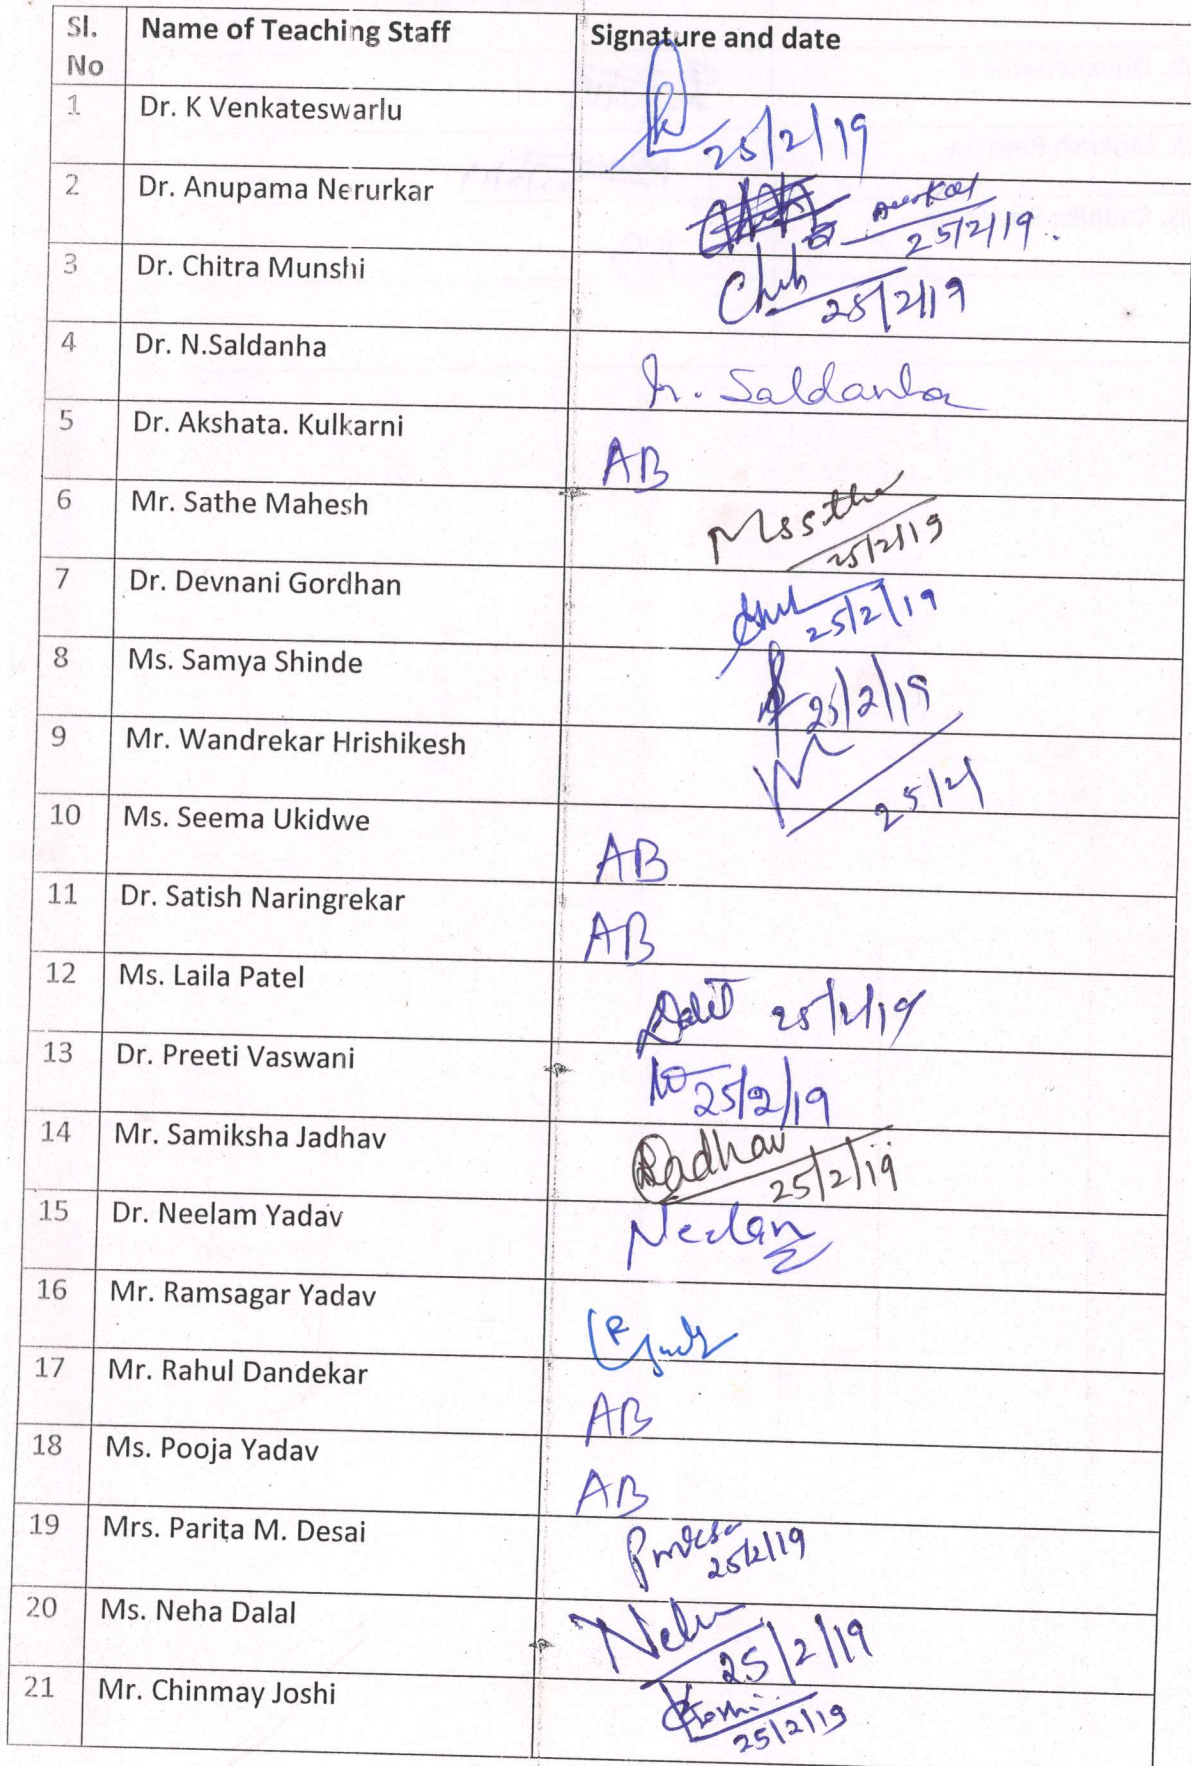 Sl. No Name of Teaching Staff Signature and date
1 Dr. K Venkateswarlu 25/2/19
2 Dr. Anupama Nerurkar 25/2/19.
3 Dr. Chitra Munshi 25/2/19
4 Dr. N.Saldanha N. Saldanha
5 Dr. Akshata. Kulkarni AB
6 Mr. Sathe Mahesh 25/2/19
7 Dr. Devnani Gordhan 25/2/19
8 Ms. Samya Shinde 25/2/19
9 Mr. Wandrekar Hrishikesh 25/2/
10 Ms. Seema Ukidwe AB
11 Dr. Satish Naringrekar AB
12 Ms. Laila Patel 25/2/19
13 Dr. Preeti Vaswani 25/2/19
14 Mr. Samiksha Jadhav Jadhav 25/2/19
15 Dr. Neelam Yadav Neelam
16 Mr. Ramsagar Yadav
17 Mr. Rahul Dandekar AB
18 Ms. Pooja Yadav AB
19 Mrs. Parita M. Desai 25/2/19
20 Ms. Neha Dalal Neha 25/2/19
21 Mr. Chinmay Joshi Joshi 25/2/19